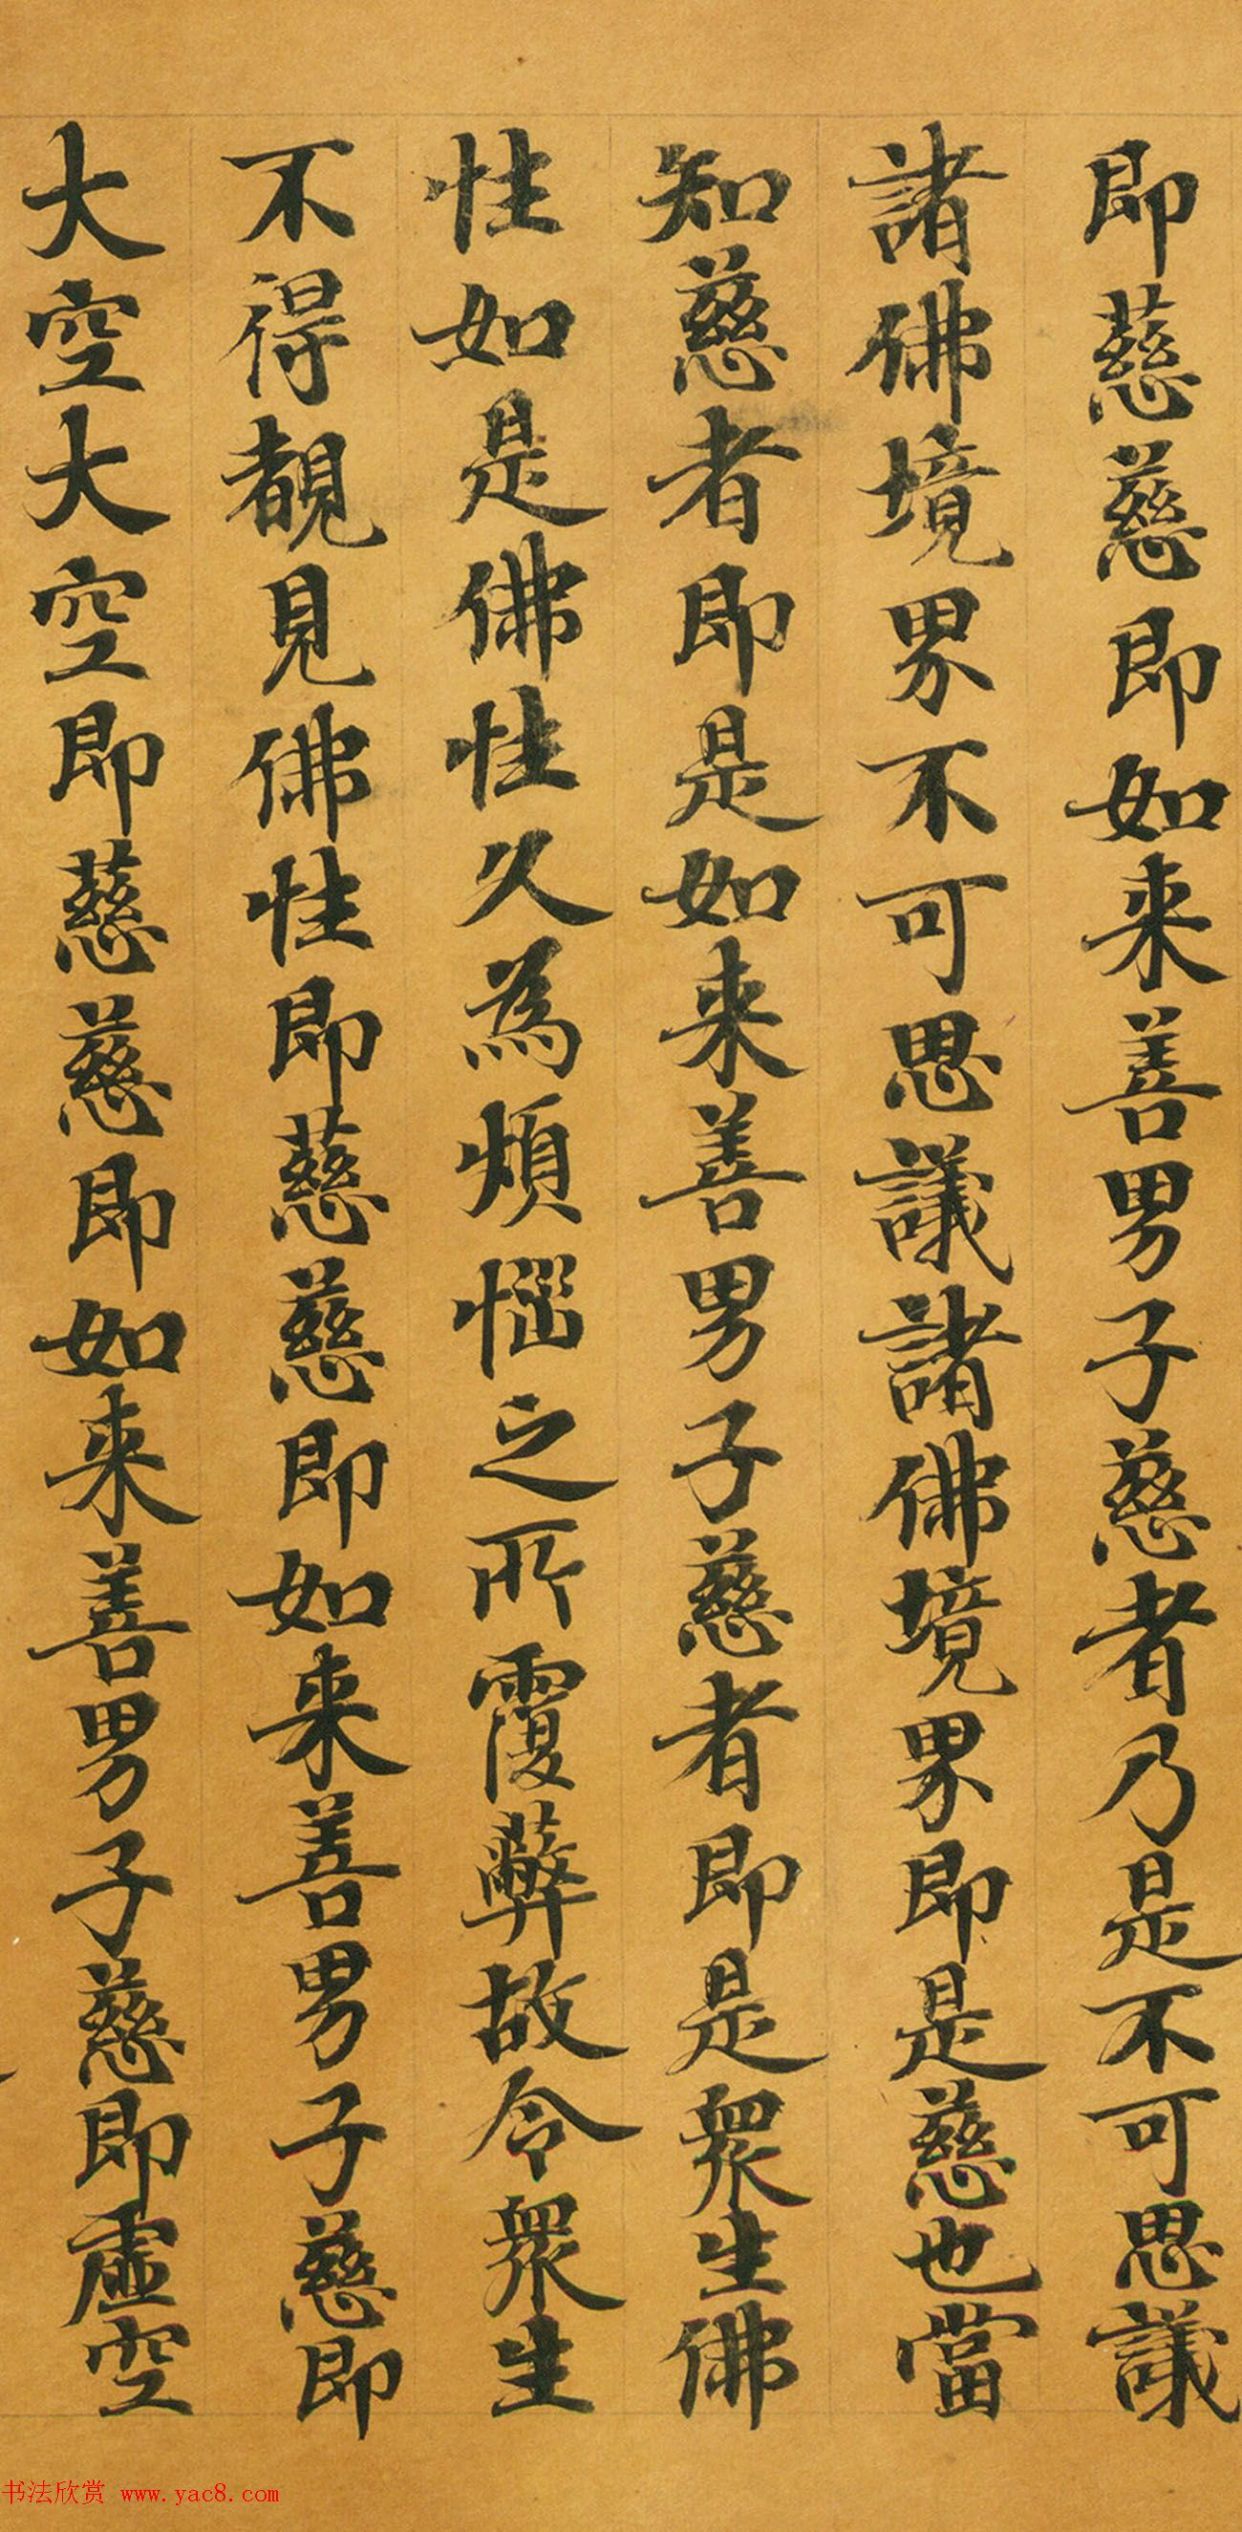 即慈慈即如来善男子慈者乃是不可思議
諸佛境界不可思議諸佛境界即是慈也當
知慈者即是如来善男子慈者即是衆生佛
性如是佛性久為煩惱之所覆蔽故令衆生
不得覩見佛性即慈慈即如来善男子慈即
大空大空即慈慈即如来善男子慈即虛空
书法欣赏 www.yac8.com